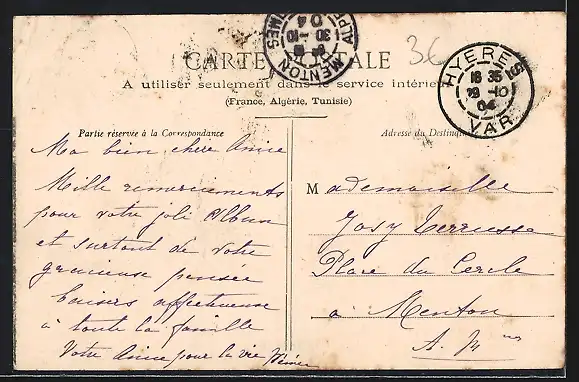 CARTE POSTALE
36
A utiliser seulement dans le service intérieur
(France, Algérie, Tunisie)
MENTON
ALPES MARITIMES
30 -10
04
HYERES
18 35
10
04
VAR
Partie réservée à la Correspondance
Ma bien chère Amie
Mille remerciements
pour votre joli Album
et surtout de votre
gracieuse pensée
baisers affectueux
à toute la famille
Votre Amie pour la vie
Adresse du Destinataire
Mademoiselle
Josy
Place du Cercle
à Menton
A. Mmes